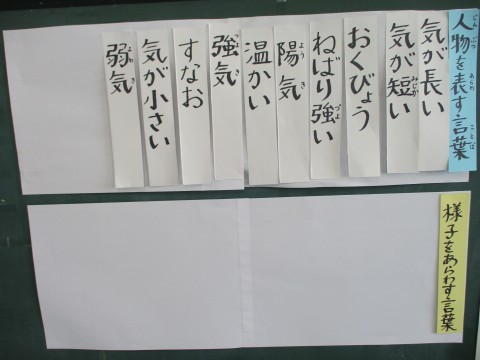 人物を表す言葉
気が長い
気が短い
おくびょう
ねばり強い
陽気
温かい
強気
すなお
気が小さい
弱気
様子をあらわす言葉